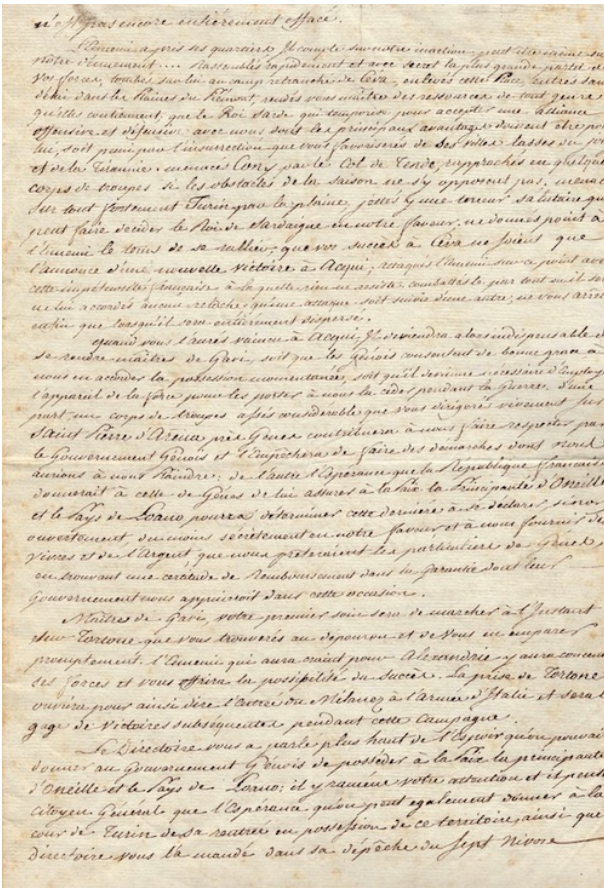 n'est pas encore entiérement effacé.
L'Ennemi a pris ses quartiers. Il compte sur notre inaction, peut être même sur
notre dénuement.... Rassemblés rapidement et avec secret la plus grande partie de
vos forces, tombés sur lui au camp retranché de Ceva, enlevés cette Place, entrés sans
délai dans les Plaines du Piémont, rendés vous maître des ressources de tout genre
qu'elles contiennent, que le Roi Sarde qui temporise pour accepter une alliance
offensive et défensive avec nous dont les principaux avantages doivent être pour
lui, soit puni par l'insurrection que vous favoriserés de ses villes lasses du joug
et de la Tirannie. menacés Cony par le Col de Tende, rapprochés en quelques
corps de troupes si les obstacles de la saison ne s'y opposent pas. menacés
sur tout fortement Turin par la plaine, jettés y une terreur salutaire qui
peut faire décider le Roi de Sardaigne en notre faveur. ne donnés point à
l'ennemi le tems de se rallier; que vos succès à Ceva ne soient que
l'annonce d'une nouvelle victoire à Acqui, attaqués l'Ennemi sur ce point avec
cette impétuosité française à la quelle rien ne résiste, combattés le par tout où il sera
ne lui accordés aucune relâche, qu'une attaque soit suivie d'une autre, ne vous arrêtés
enfin que lorsqu'il sera entiérement dispersé.
quand vous l'aurés vaincu à Acqui, Il deviendra alors indispensable de
se rendre maîtres de Gavi, soit que les Génois consentent de bonne grace à
nous en accorder la possession momentanée, soit qu'il devienne nécessaire d'employer
l'appareil de la force pour les porter à nous la céder pendant la Guerre. d'une
part un corps de troupes assés considérable que vous dirigerés vivement sur
Saint Pierre d'Arena près Gênes contribuera à nous faire respecter par
le Gouvernement Génois et l'empêchera de faire des démarches dont nous
aurions à nous plaindre; de l'autre l'Espérance que la République française
donnerait à celle de Gênes de lui assurer à la Paix la Principauté d'Oneille
et le Pays de Loano pourra déterminer cette dernière à se déclarer sinon
ouvertement du moins secrètement en notre faveur et à nous fournir des
vivres et de l'Argent que nous prêteraient les particuliers de Gênes
en trouvant une certitude de Remboursement dans la Garantie dont leur
Gouvernement nous appuiroit dans cette occasion.
Maîtres de Gavi, votre premier soin sera de marcher à l'Instant
sur Tortone que vous trouverés au dépourvu et de vous en emparer
promptement. l'Ennemi qui aura craint pour Alexandrie y aura concentré
ses forces et vous offrira la possibilité du succès. La prise de Tortone
ouvrira pour ainsi dire l'Entrée du Milanez à l'Armée d'Italie et sera le
gage de victoires subséquentes pendant cette Campagne.
Le Directoire vous a parlé plus haut de l'Espoir qu'on pouvait
donner au Gouvernement Génois de posséder à la Paix la principauté
d'Oneille et le Pays de Loano; il y ramène votre attention et il pense
Citoyen Général que l'Espérance qu'on peut également donner à la
cour de Turin de sa rentrée en possession de ce territoire, ainsi que
directoire vous l'a mandé dans sa dépêche du sept Nivose